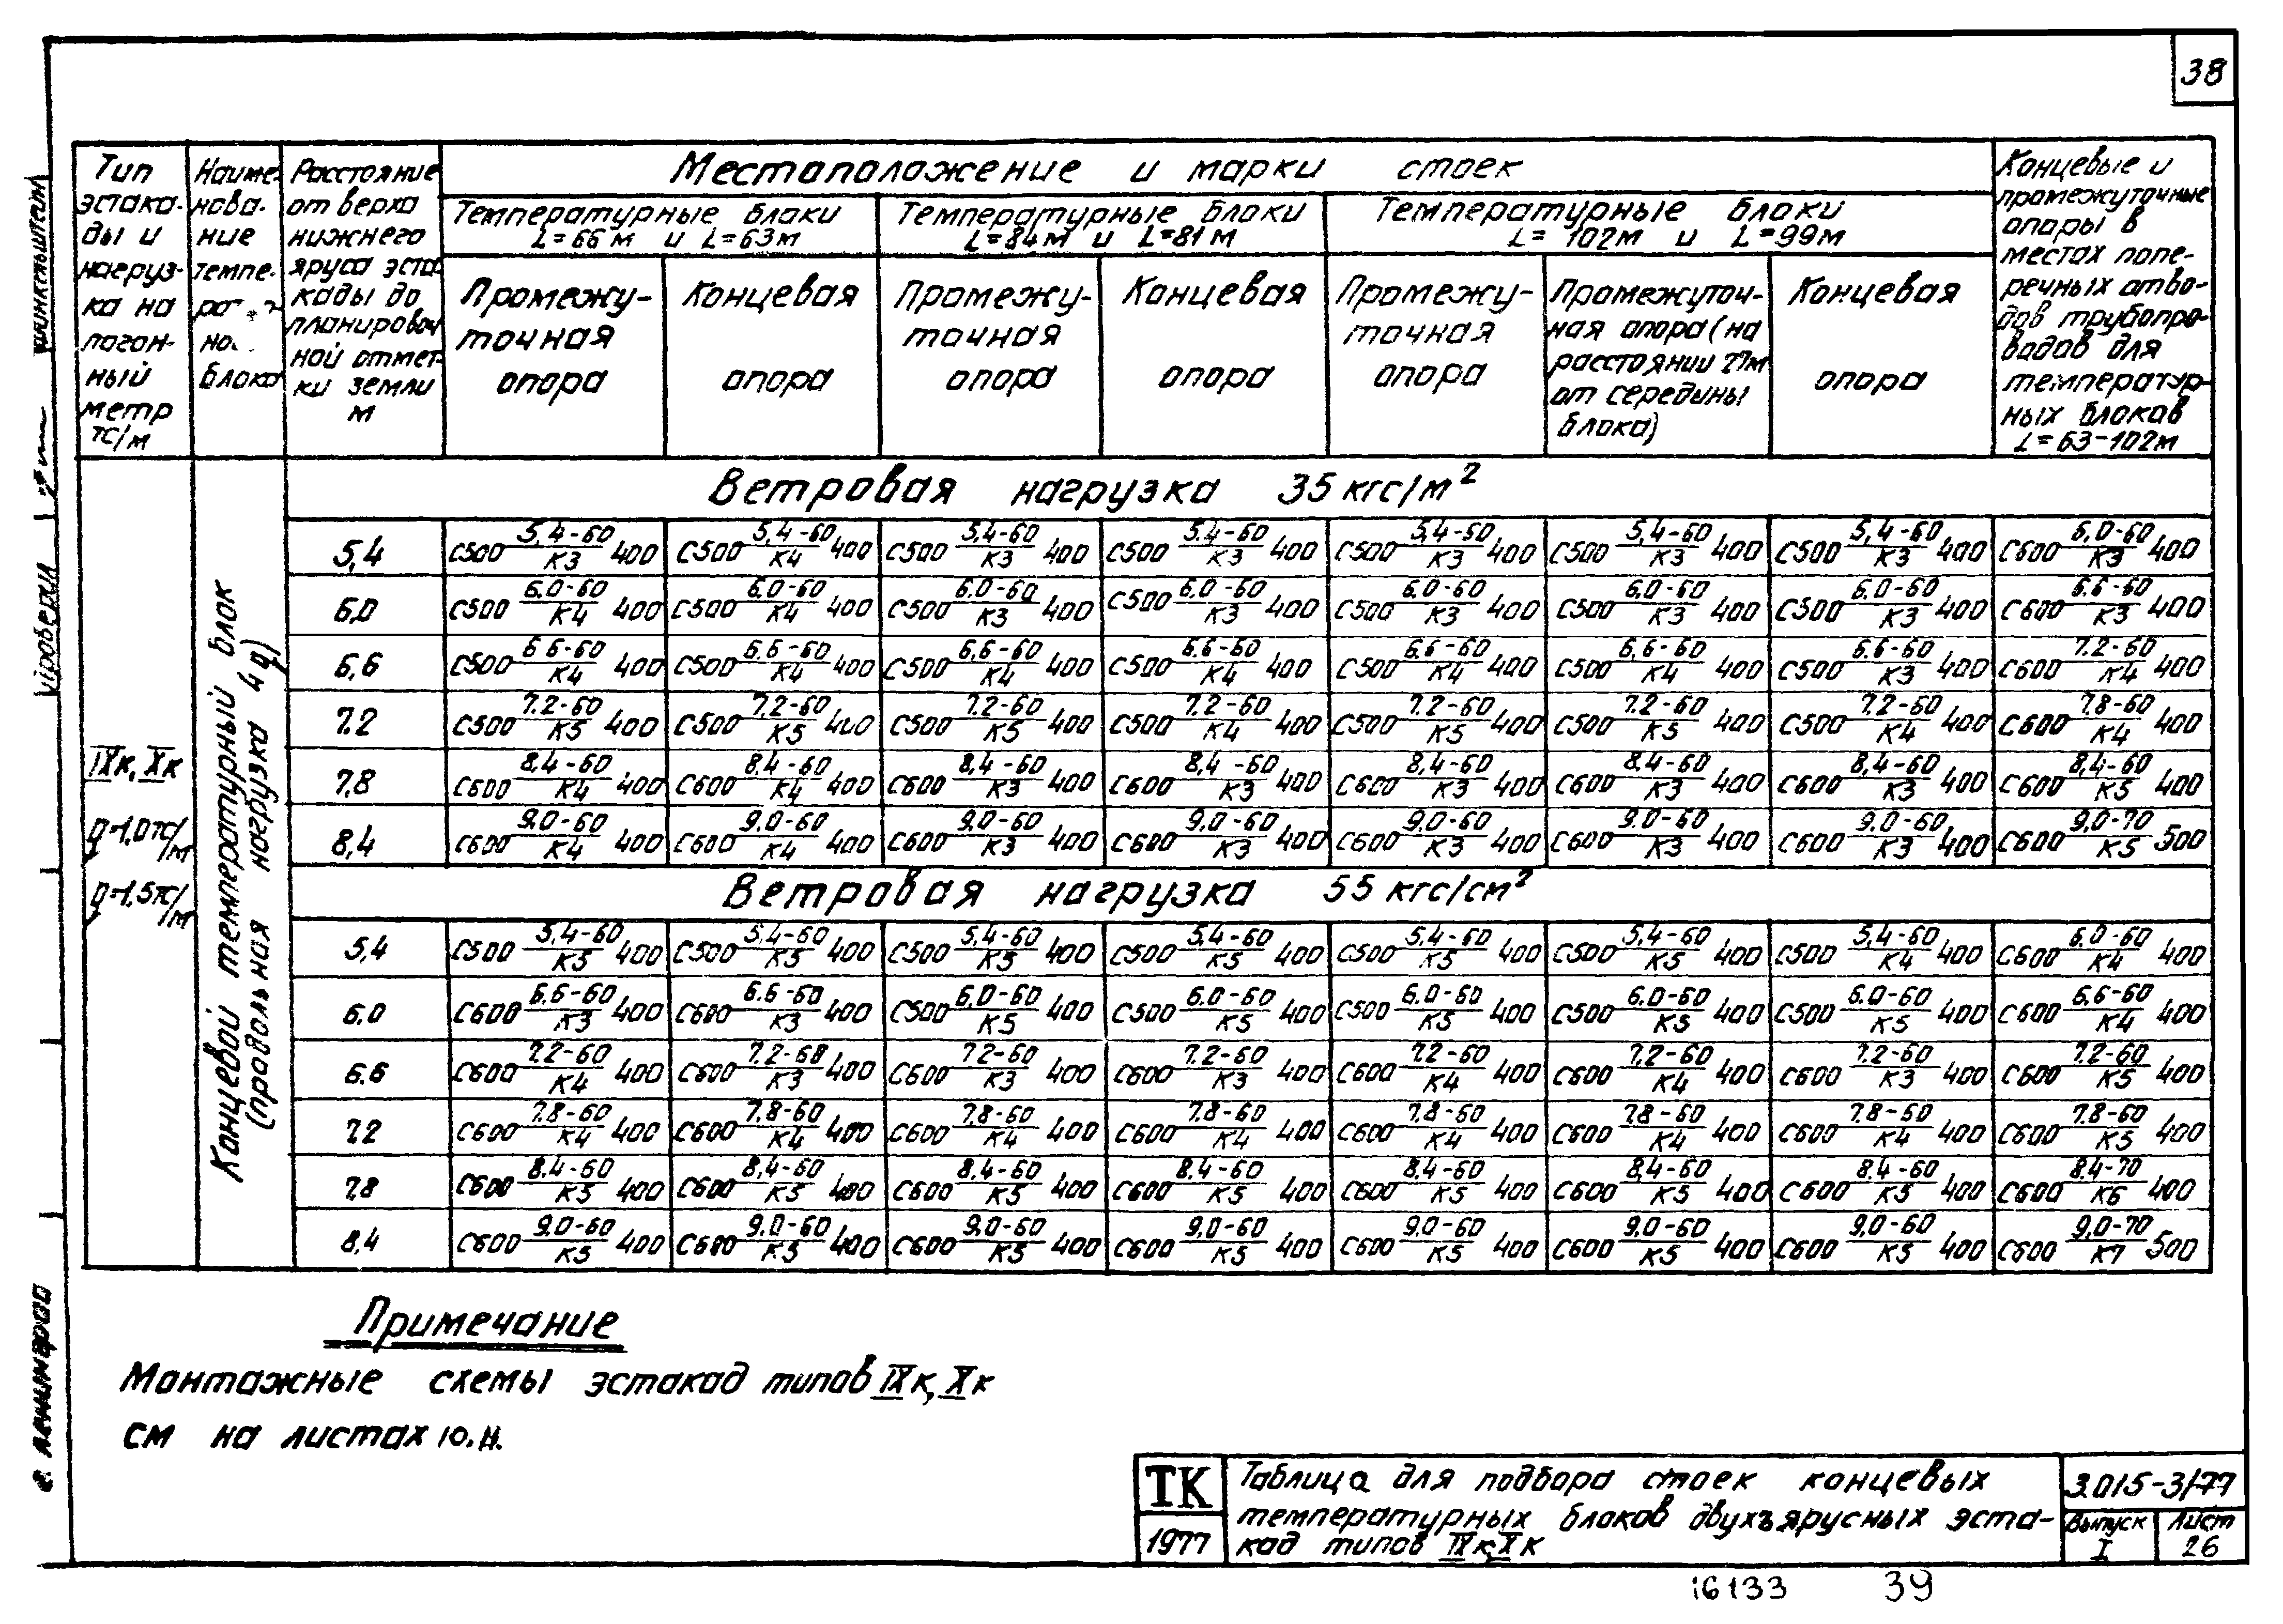 38
Тип эстакады и нагрузка на погонный метр тс/м
Наименование блока
Расстояние от верха нижнего яруса эстакады до планировочной отметки земли м
Местоположение и марки стоек
Температурные блоки L=66м и L=63м
Температурные блоки L=84м и L=81м
Температурные блоки L=102м и L=99м
Концевые и промежуточные опоры в местах поперечных отводов трубопроводов для температурных блоков L=63-102м
Промежуточная опора
Концевая опора
Промежуточная опора
Концевая опора
Промежуточная опора
Промежуточная опора (на расстоянии 27м от середины блока)
Концевая опора
IXк, Xк
q=1,0тс/м
q=1,5тс/м
Концевой температурный блок
(продольная нагрузка 4q)
Ветровая нагрузка 35 кгс/м²
5,4 С500 5,4-60/К3 400 С500 5,4-60/К4 400 С500 5,4-60/К3 400 С500 5,4-60/К3 400 С500 5,4-60/К3 400 С500 5,4-60/К3 400 С500 5,4-60/К3 400 С600 6,0-60/К3 400
6,0 С500 6,0-60/К4 400 С500 6,0-60/К4 400 С500 6,0-60/К3 400 С500 6,0-60/К3 400 С500 6,0-60/К3 400 С500 6,0-60/К3 400 С500 6,0-60/К3 400 С600 6.6-60/К3 400
6,6 С500 6.6-60/К4 400 С500 6.6-60/К4 400 С500 6,6-60/К4 400 С500 6.6-60/К4 400 С500 6.6-60/К4 400 С500 6,6-60/К4 400 С500 6.6-60/К3 400 С600 7.2-60/К4 400
7.2 С500 7.2-60/К5 400 С500 7,2-60/К5 400 С500 7.2-60/К5 400 С500 7.2-60/К4 400 С500 7.2-60/К5 400 С500 7.2-60/К5 400 С500 7.2-60/К4 400 С600 7.8-60/К4 400
7,8 С600 8,4-60/К4 400 С600 8,4-60/К4 400 С600 8,4-60/К3 400 С600 8,4-60/К3 400 С600 8,4-60/К3 400 С600 8,4-60/К3 400 С600 8,4-60/К3 400 С600 8,4-60/К5 400
8,4 С600 9.0-60/К4 400 С600 9.0-60/К4 400 С600 9.0-60/К3 400 С600 9,0-60/К3 400 С600 9.0-60/К3 400 С600 9.0-60/К3 400 С600 9.0-60/К3 400 С600 9,0-70/К5 500
Ветровая нагрузка 55 кгс/см²
5,4 С500 5,4-60/К5 400 С500 5,4-60/К5 400 С500 5,4-60/К5 400 С500 5,4-60/К5 400 С500 5,4-60/К5 400 С500 5,4-60/К5 400 С500 5,4-60/К4 400 С600 6.0-60/К4 400
6.0 С600 6.6-60/К3 400 С600 6.6-60/К3 400 С500 6,0-60/К5 400 С500 6.0-60/К5 400 С500 6.0-60/К5 400 С500 6.0-60/К5 400 С500 6.0-60/К5 400 С600 6,6-60/К4 400
6.6 С600 7.2-60/К4 400 С600 7.2-60/К3 400 С600 7.2-60/К3 400 С600 7.2-60/К3 400 С600 7.2-60/К4 400 С600 7,2-60/К4 400 С600 7.2-60/К3 400 С600 7.2-60/К5 400
7.2 С600 7.8-60/К4 400 С600 7,8-60/К4 400 С600 7,8-60/К4 400 С600 7.8-60/К4 400 С600 7.8-60/К4 400 С600 7.8-60/К4 400 С600 7.8-60/К4 400 С600 7.8-60/К5 400
7.8 С600 8.4-60/К5 400 С600 8,4-60/К5 400 С600 8.4-60/К5 400 С600 8.4-60/К5 400 С600 8.4-60/К5 400 С600 8,4-60/К5 400 С600 8.4-60/К5 400 С600 8.4-70/К6 400
8,4 С600 9.0-60/К5 400 С600 9.0-60/К5 400 С600 9.0-60/К5 400 С600 9.0-60/К5 400 С600 9.0-60/К5 400 С600 9.0-60/К5 400 С600 9.0-60/К5 400 С600 9,0-70/К7 500
Примечание
Монтажные схемы эстакад типов IXк, Xк
см на листах 10.11.
ТК
1977
Таблица для подбора стоек концевых
температурных блоков двухъярусных эста-
кад типов IXк,Xк
3.015-3/77
Выпуск I
Лист 26
16133 39
Проверил
г. Ленинград